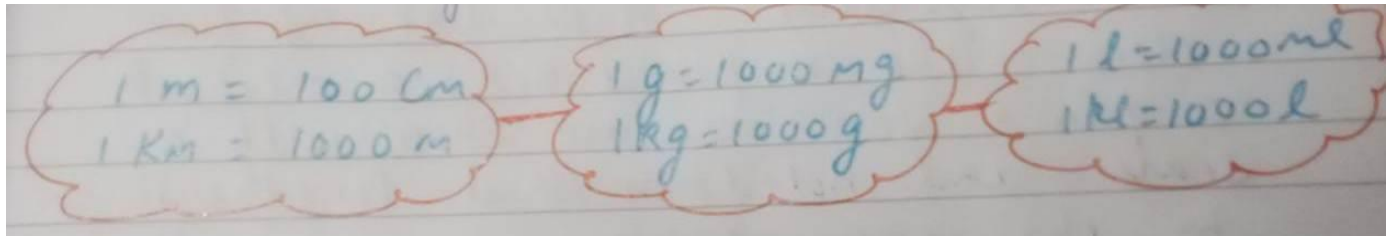 1 m = 100 Cm
1 Km = 1000 m
1 g = 1000 mg
1 kg = 1000 g
1 l = 1000 ml
1 kl = 1000 l